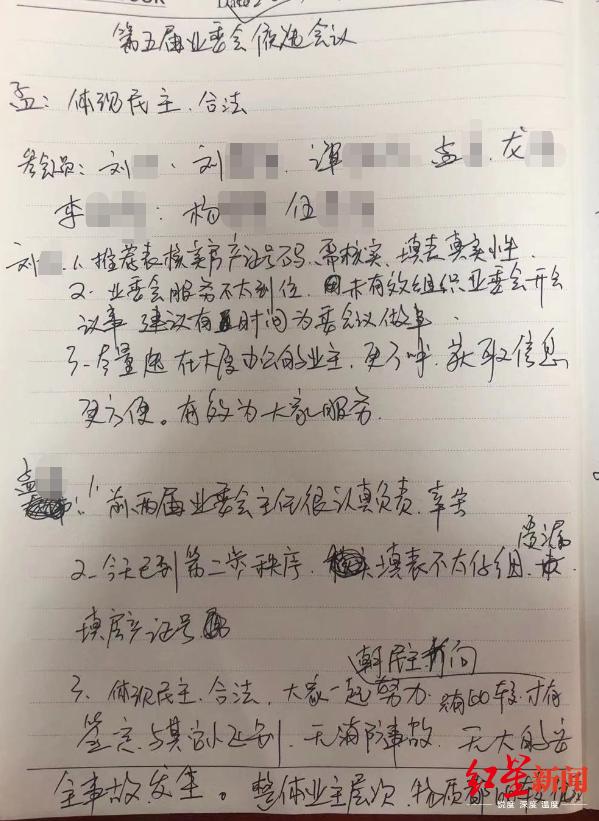 第五届业委会候选会议
孟：体现民主、合法
参会人员：刘 、刘 、谭 孟 、龙
李 ：杨 伍
刘 ：1、推荐表核实房产证号码、需核实、填表真实性.
2、业委会服务不太到位、未有效组织业委会开会
议事 建议有时间为委会议做事、
3、尽量选在大厦办公的业主、更了呼、获取信息
更方便。有效为大家服务.
孟 ：1、前两届业委会主任很认真负责、辛苦
2、今天已到第二步秩序、填表不太仔细、
填房产证号
朝民主新向
3、体现民主、合法、大家一起努力、才有
无消防事故、无大的安
全事故发生。整体业主层次、物质都
红星新闻
锐度 深度 温度